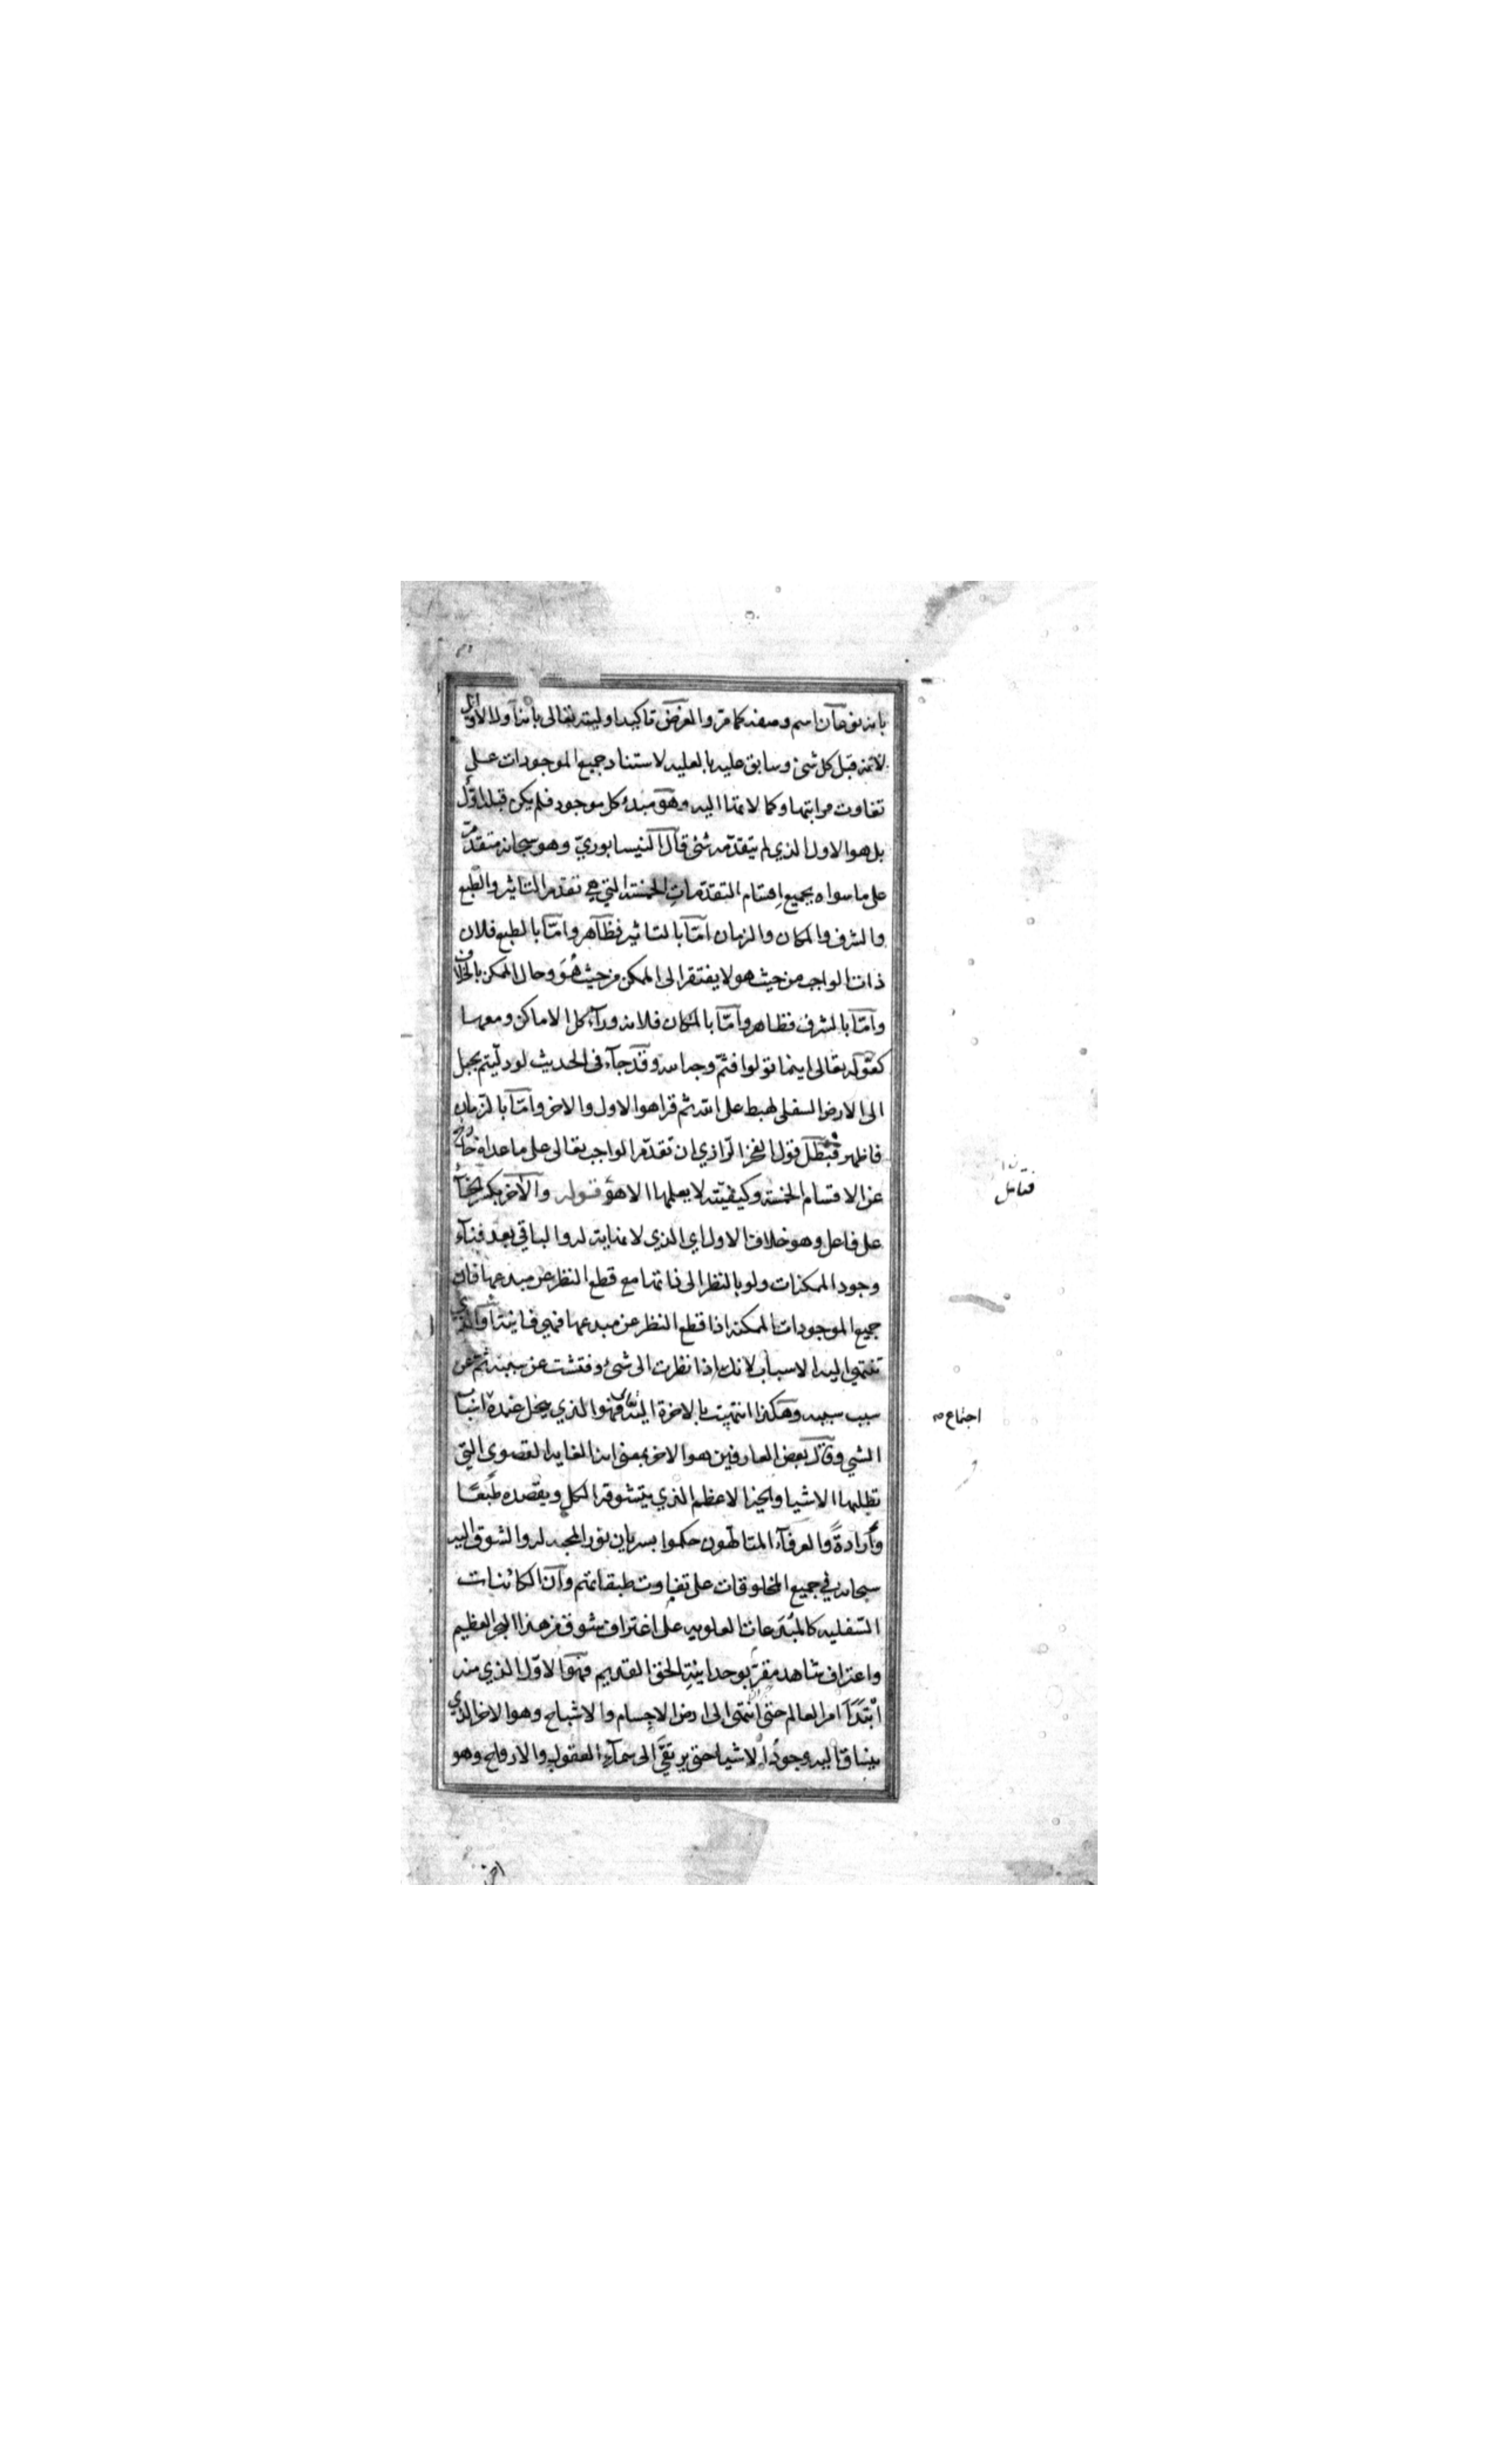 بانه نوعان اسم وصفة كما مر والغرض تاكيد اوليته تعالى بانه اول الاوائل
لانه قبل كل شئ وسابق عليه بالعلية لاستناد جميع الموجودات على
تفاوت مراتبها وكمالاتها اليه وهو مبدء كل موجود فلم يكن قبله اول
بل هو الاول الذي لم يتقدمه شئ قال النيسابوري وهو سبحانه متقدم
على ما سواه بجميع اقسام التقدمات الخمسة التي هي تقدم التاثير والطبع
والشرف والمكان والزمان امّا بالتاثير فظاهر وامّا بالطبع فلان
ذات الواجب من حيث هو لا يفتقر الى الممكن من حيث هُوَ وحال الممكن بالخلاف
وامّا بالشرف فظاهر وامّا بالمكان فلانه ورآء كل الاماكن ومعها
كقوله تعالى اينما تولوا فثم وجه الله وقد جآء في الحديث لو دليتم بحبل
الى الارض السفلى لهبط على الله ثم قرا هو الاول والاخر وامّا بالزمان
فاظهر فبطل قول الفخر الرازي ان تقدم الواجب تعالى على ما عداه خارج
عن الاقسام الخمسة وكيفيته لا يعلمها الا هو قوله والآخر بكسر الخآء
على فاعل وهو خلاف الاول اي الذي لا نهاية له والباقي بعد فنآء
وجود الممكنات ولو بالنظر الى ذاتها مع قطع النظر عن مبدعها فان
جميع الموجودات الممكنة اذا قطع النظر عن مبدعها فهي فانية او الذي
تنتهي اليه الاسباب لانك اذا نظرت الى شئ وفتشت عن سببه ثم عن
سبب سببه وهكذا انتهيت بالاخرة اليه فهو الذي ينحل عنده اسباب
الشي وقال بعض العارفين هو الاخر بمعنى انه الغاية القصوى التي
تطلبها الاشيا والخير الاعظم الذي يتشوقه الكل ويقصده طبعًا
وارادةً والعرفآء المتالهون حكموا بسريان نور المجد له والشوق اليه
سبحانه في جميع المخلوقات على تفاوت طبقاتهم وان الكائنات
السفليه كالمبدعات العلويه على اغتراف شوق من هذا البحر العظيم
واعتراف شاهد مقر بوحدانية الحق القديم فهو الاول الذي منه
ابْتَدَا امر العالم حتى انتهى الى ارض الاجسام والاشباح وهو الاخر الذي
ينساق اليه وجود الاشيا حتى يرتقي الى سمآء العقول والارواح وهو
فتامل
اجتماع